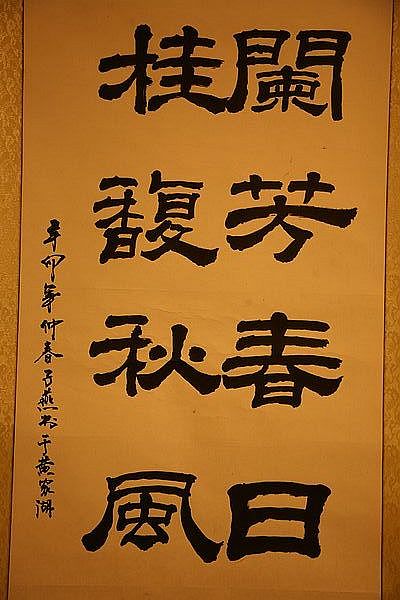 闌芳春日
桂馥秋風
辛卯年仲春子燕书于黄家湖